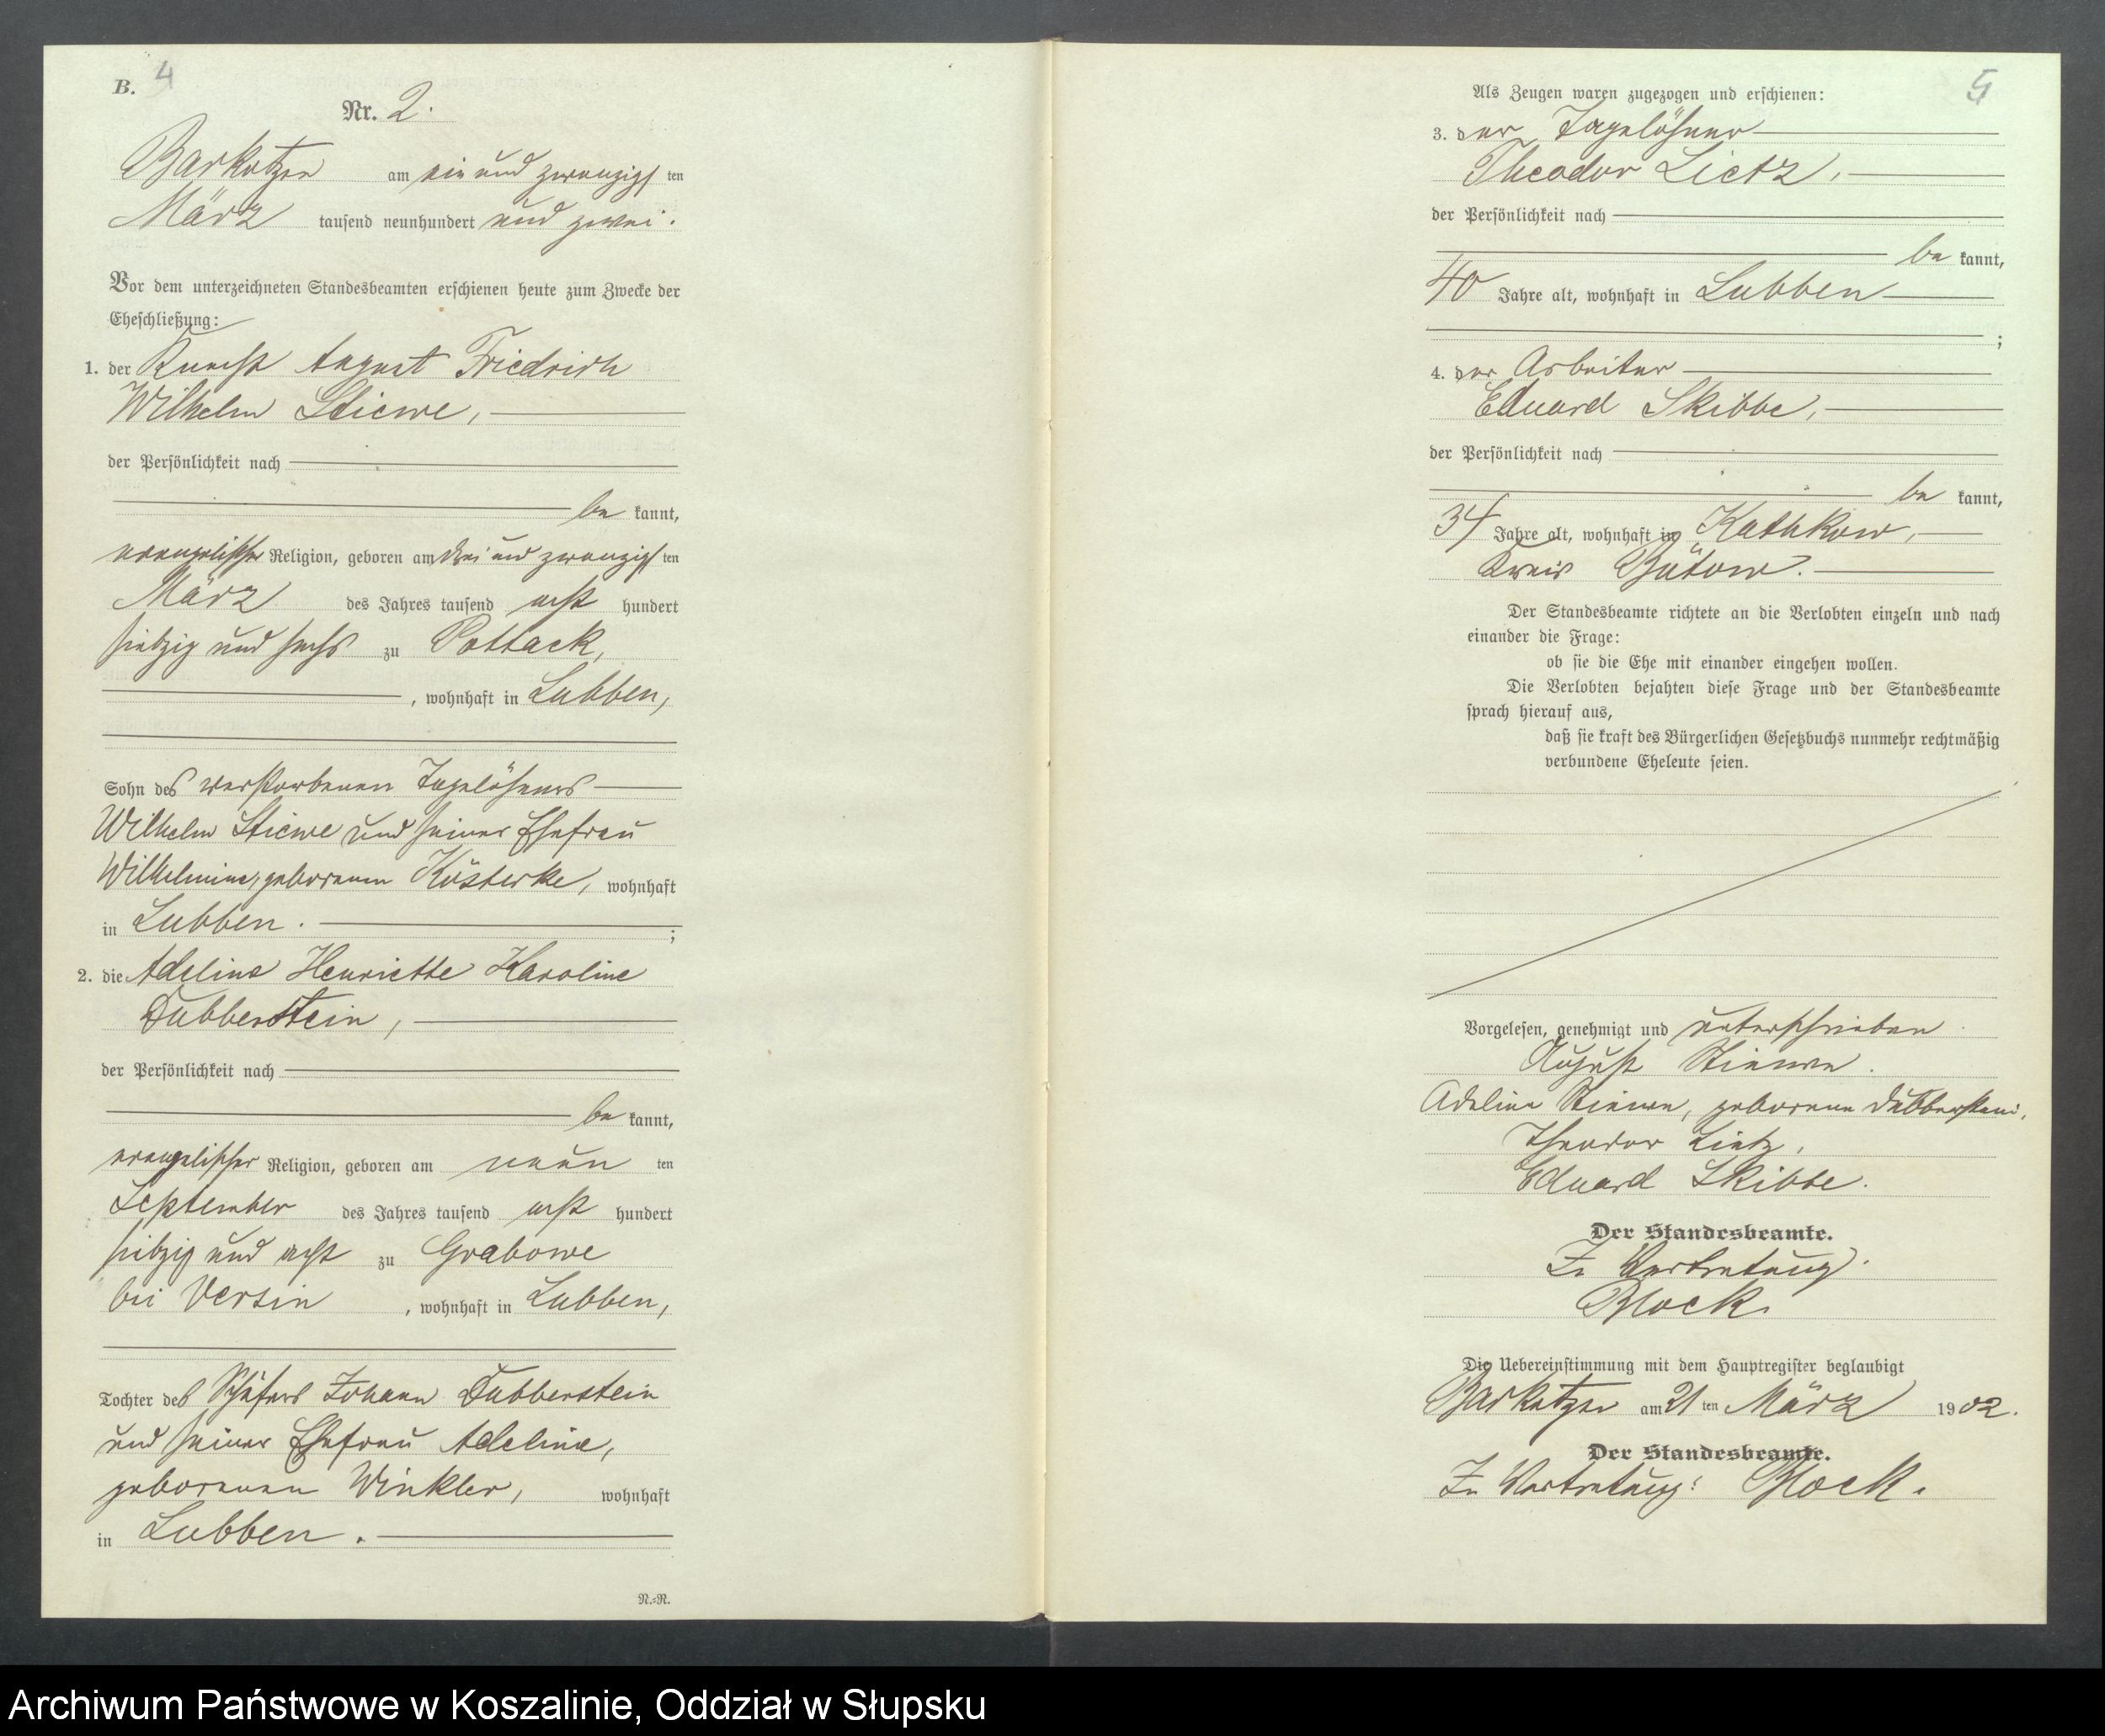 B.
4
Nr. 2.
Barkotzen am ein und zwanzigsten
März tausend neunhundert und zwei.
Vor dem unterzeichneten Standesbeamten erschienen heute zum Zwecke der
Eheschließung:
1. der Knecht August Friedrich
Wilhelm Stiewe,
der Persönlichkeit nach
be kannt,
evangelischer Religion, geboren am drei und zwanzigsten
März des Jahres tausend acht hundert
siebzig und sechs zu Pottack,
, wohnhaft in Lubben,
Sohn des verstorbenen Tagelöhners
Wilhelm Stiewe und seiner Ehefrau
Wilhelmine, geborenen Kösterke, wohnhaft
in Lubben. ;
2. die Adeline Henriette Karoline
Dubberstein,
der Persönlichkeit nach
be kannt,
evangelischer Religion, geboren am neun ten
September des Jahres tausend acht hundert
siebzig und acht zu Grabowe
bei Versin , wohnhaft in Lubben,
Tochter des Schäfers Johann Dubberstein
und seiner Ehefrau Adeline,
geborenen Winkler, wohnhaft
in Lubben.
N.=R.
5
Als Zeugen waren zugezogen und erschienen:
3. der Tagelöhner
Theodor Lietz,
der Persönlichkeit nach
be kannt,
40 Jahre alt, wohnhaft in Lubben
;
4. der Arbeiter
Eduard Skibbe,
der Persönlichkeit nach
be kannt,
34 Jahre alt, wohnhaft in Kathkow,
Kreis Bütow.
Der Standesbeamte richtete an die Verlobten einzeln und nach
einander die Frage:
ob sie die Ehe mit einander eingehen wollen.
Die Verlobten bejahten diese Frage und der Standesbeamte
sprach hierauf aus,
daß sie kraft des Bürgerlichen Gesetzbuchs nunmehr rechtmäßig
verbundene Eheleute seien.
Vorgelesen, genehmigt und unterschrieben
August Stiewe.
Adeline Stiewe, geborene Dubberstein.
Theodor Lietz.
Eduard Skibbe.
Der Standesbeamte.
In Vertretung.
Block.
Die Uebereinstimmung mit dem Hauptregister beglaubigt
Barkotzen am 21 ten März 1902.
Der Standesbeamte.
In Vertretung: Block.
Archiwum Państwowe w Koszalinie, Oddział w Słupsku